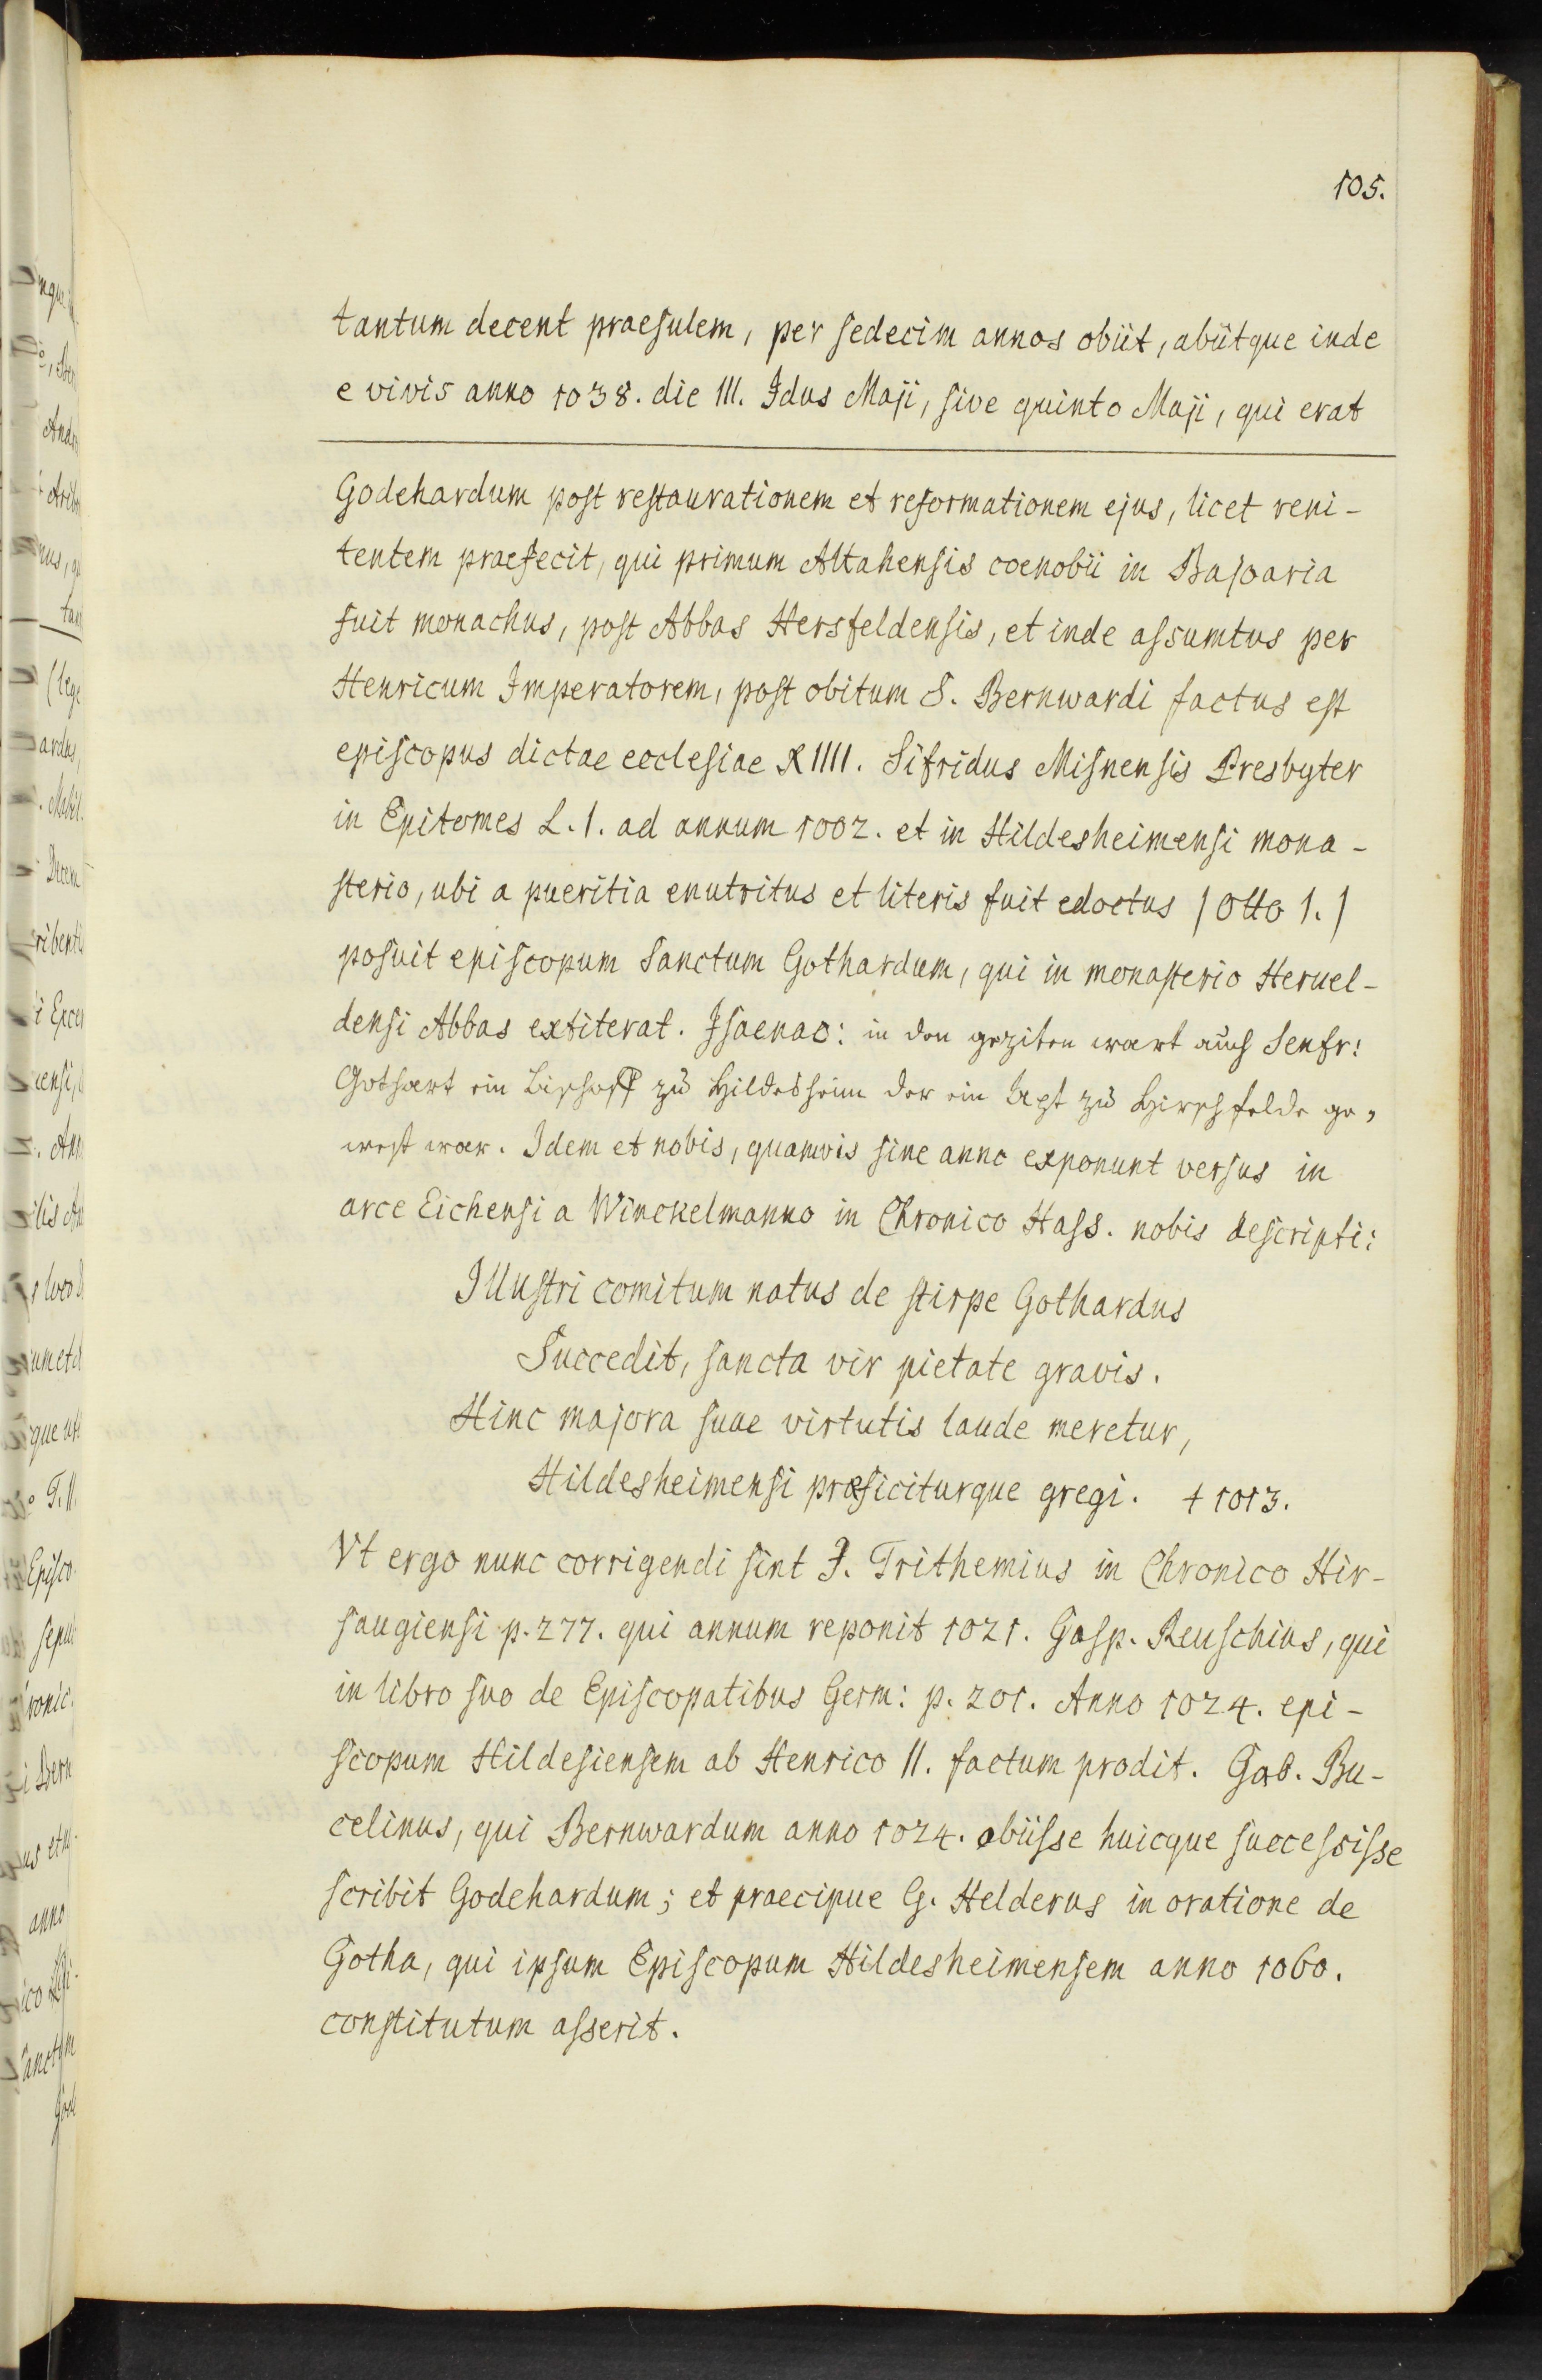 105.
tantum decent praesulem, per sedecim annos obiit, abiitque inde
e vivis anno 1038. die III. Idus Maji, sive quinto Maji, qui erat
Godehardum post restaurationem et reformationem ejus, licet reni-
tentem praefecit, qui primum Altahensis coenobii in Bajoaria
fuit monachus, post Abbas Hersfeldensis, et inde assumtus per
Henricum Imperatorem, post obitum S. Bernwardi factus est
episcopus dictae ecclesiae XIIII. Sifridus Misnensis Presbyter
in Epitomes L. I. ad annum 1002. et in Hildesheimensi mona-
sterio, ubi a pueritia enutritus et literis fuit edoctus /Otto I./
posuit episcopum Sanctum Gothardum, qui in monasterio Heruel-
densi Abbas extiterat. Isaenac: in den geziten wart auch Senfr:
Gothart ein Bischoff zu Hildesheim der ein Apt zu Hirschfelde ge-
west war. Idem et nobis, quamvis sine anno exponunt versus in
arce Eichensi a Winckelmanno in Chronico Hass. nobis descripti:
Illustri comitum natus de stirpe Gothardus
Succedit, sancta vir pietate gravis.
Hinc majora suae virtutis laude meretur,
Hildesheimensi praeficiturque gregi. † 1013.
Vt ergo nunc corrigendi sint J. Trithemius in Chronico Hir-
saugiensi p. 277. qui annum reponit 1021. Gasp. Reuschius, qui
in libro suo de Episcopatibus Germ: p. 201. Anno 1024. epi-
scopum Hildesiensem ab Henrico II. factum prodit. Gab. Bu-
celinus, qui Bernwardum anno 1024. obiisse huicque successisse
scribit Godehardum; et praecipue G. Helderus in oratione de
Gotha, qui ipsum Episcopum Hildesheimensem anno 1060.
constitutum asserit.